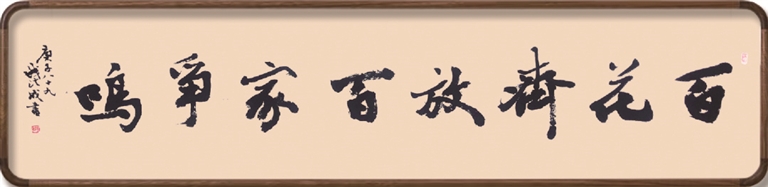 百花齊放百家爭鳴
庚子八十九
成書